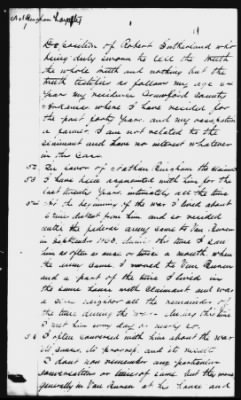 Deposition of Robert Sotherland who
being duly sworn to tell the truth
the whole truth and nothing but the
truth testified as follows my age
year my residence Crawford County
Arkansas where I have resided for
the past forty years and my occupation
a farmer I am not related to the
claimant and have no interest whatever
in this case
In favor of Nathan Bingham the claimant
I have been acquainted with him for the
last twenty years intimately all the time
At the beginning of the war I lived about
from him and so resided
until the federal army came to Van Buren
in September 1863 this time I saw
him as often as once or twice a month when
the army came I moved to Van Buren
and a part of the time I lived in
the same house with claimant and was
a near neighbor all the remainder of
the time during the war During this time
I met him every day or nearly so
I often conversed with him about the war
its causes, its progress, and its results
I dont now remember any particular
conversation or time of same but they were
generally in Van Buren at his house and